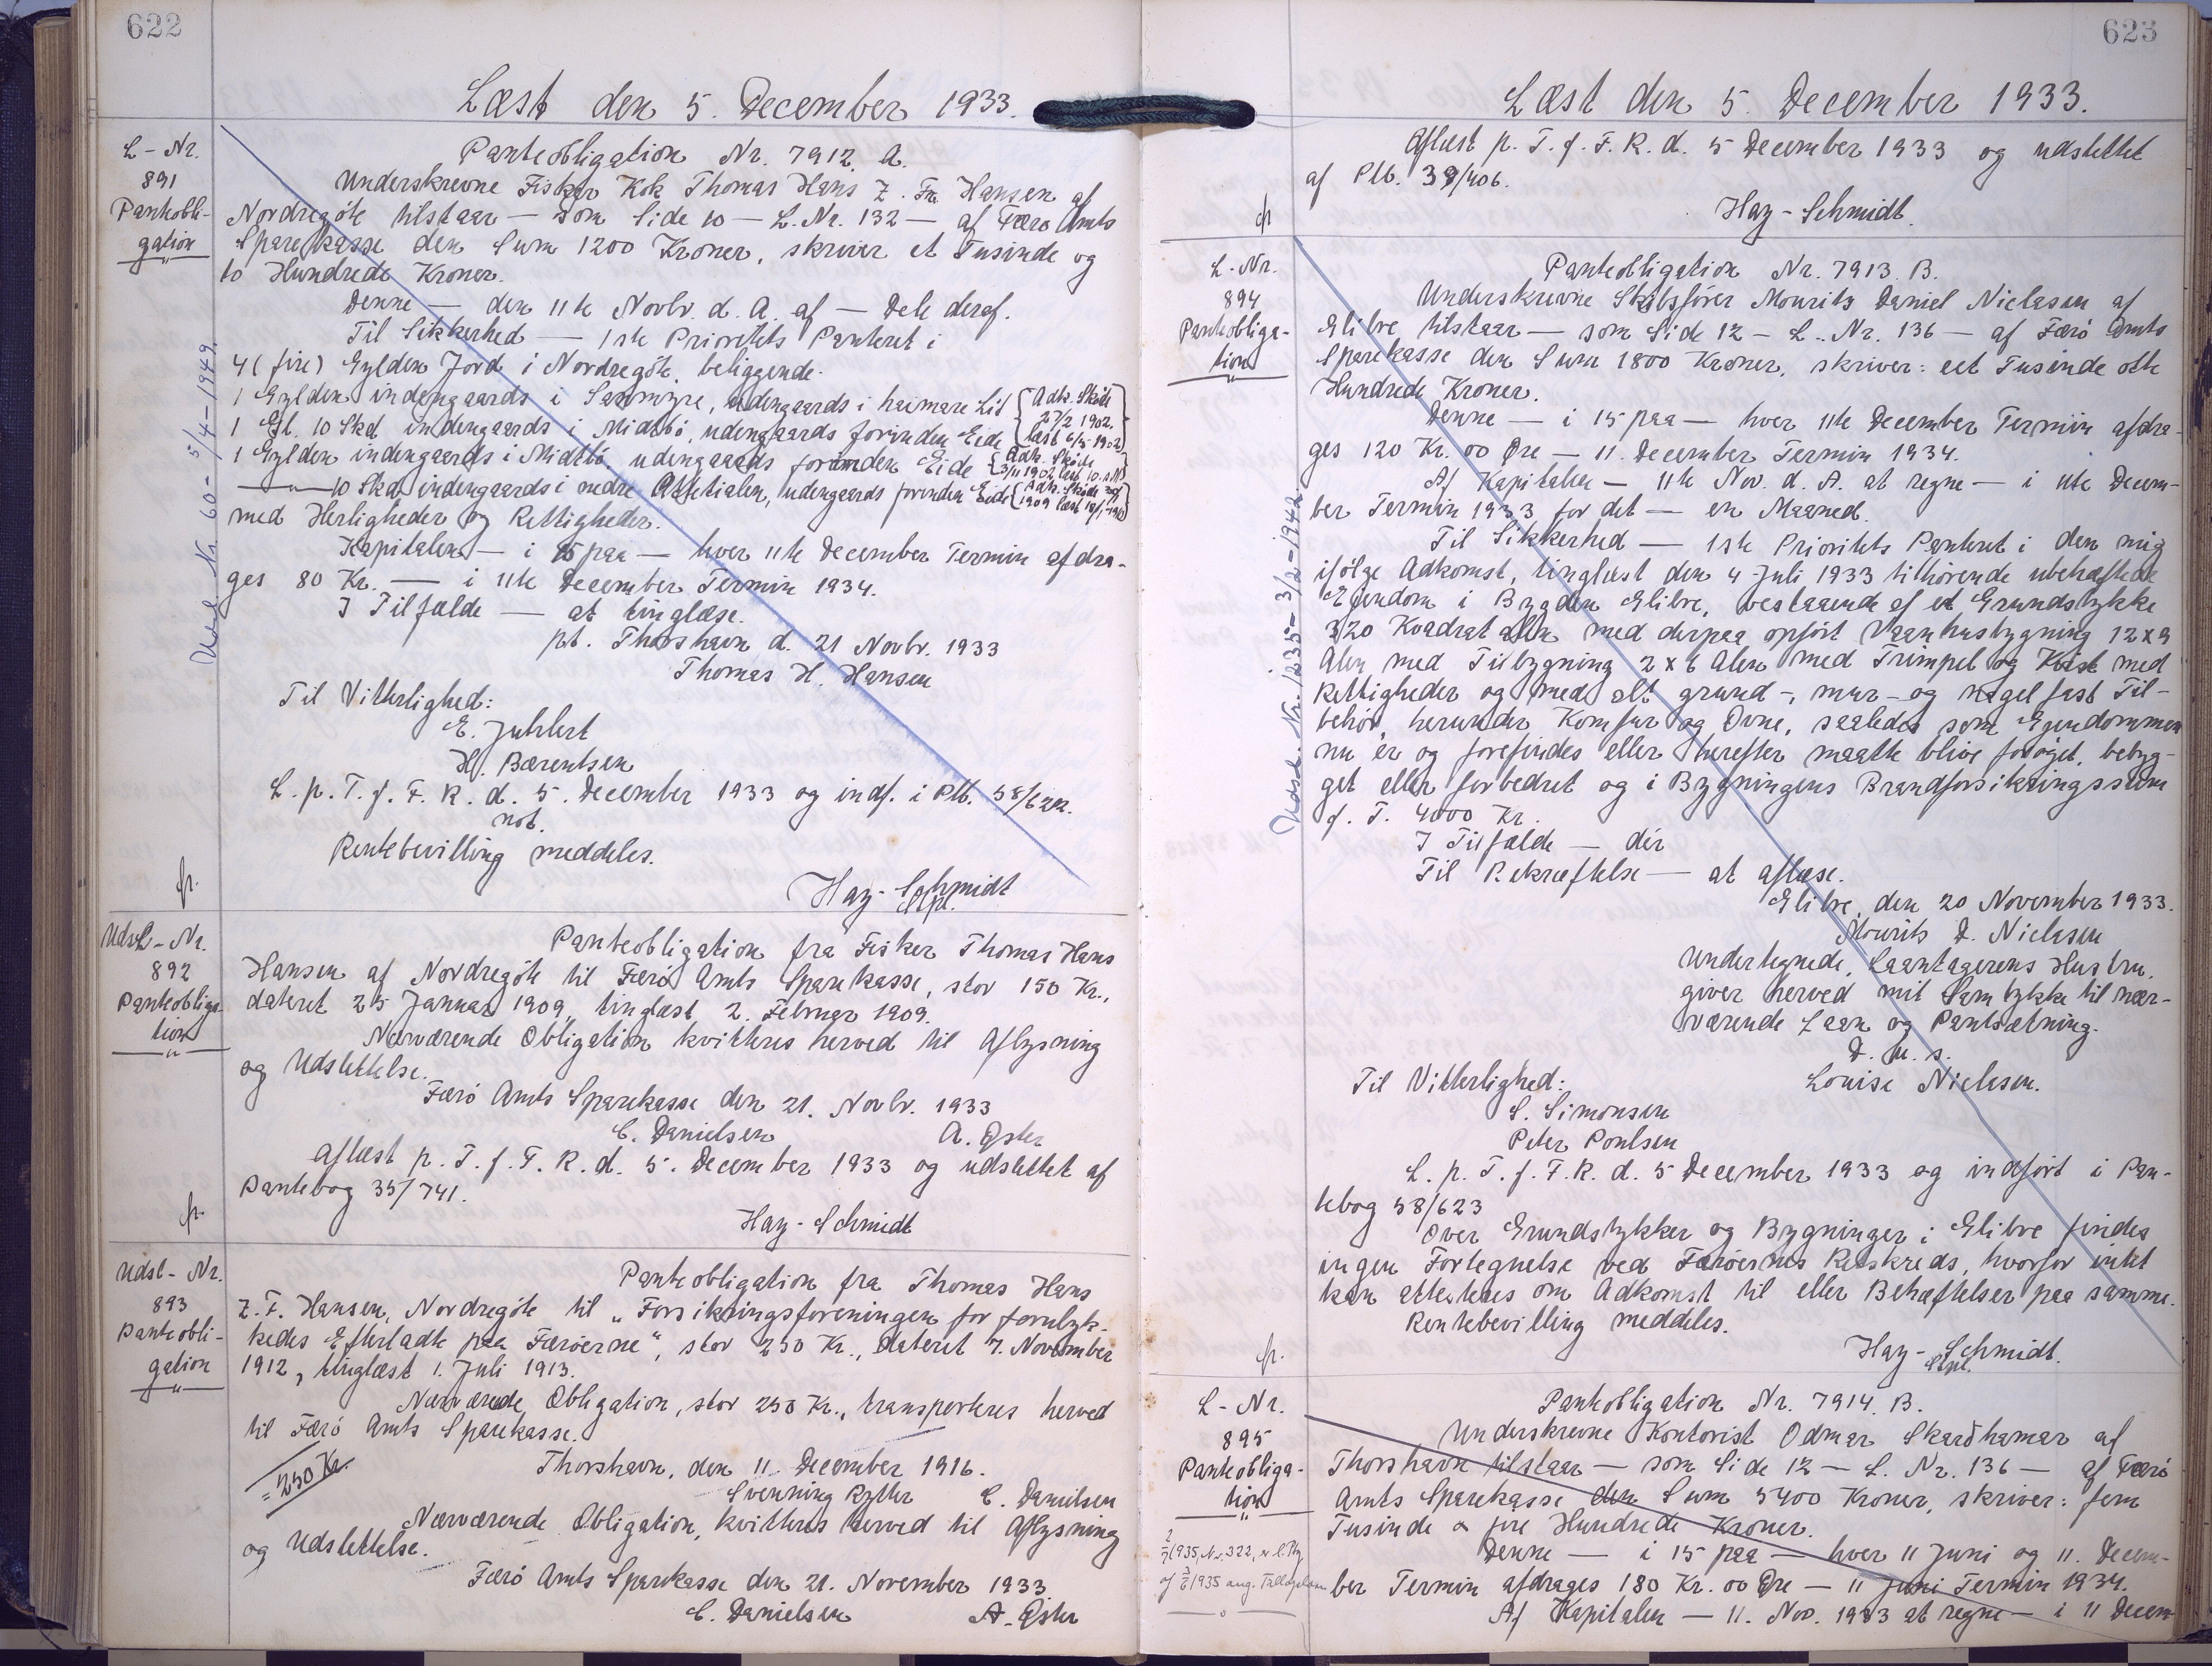 622
Læst den 5. December 1933.
L-Nr.
891
Panteobli-
gation
Udsl. Nr. 60 - 5/4-1949.
Panteobligation Nr. 7912 A.
Underskrevne Fisker Kok Thomas Hans Z. Fr. Hansen af
Nordregöte tilstaar — som Side 10 — L. Nr. 132 — af Færø Amts
Sparekasse den Sum 1200 Kroner, skriver et Tusinde og
to Hundrede Kroner.
Denne — den 11te Novbr. d. A. af — Dele deraf.
Til Sikkerhed — 1ste Prioritets Panteret i
4 (fire) Gylden Jord i Nordregöte, beliggende.
1 Gylden indengaards i Sanmyre, udengaards i haimare Lid {Adk. Skøde
27/2 1902.
læst 6/5 1902}
1 Gl. 10 Skd indengaards i Midtbö, udengaards forinden Eide
1 Gylden indengaards i Midtbö, udengaards forinden Eide {Adk. Skøde
3/11 1902
— " — 10 Skd indengaards i nedre udengaards forinden Eide {Adk. Skøde
1909 læst
med Herligheder og Rettigheder.
Kapitalen — i 15 paa — hver 11te December Termin afdra-
ges 80 Kr. — i 11te December Termin 1934.
I Tilfælde — at tinglæse.
pt. Thorshavn d. 21 Novbr. 1933
Thomas H. Hansen
Til Vitterlighed:
E. Juhlert
H. Bærentsen
L. p. T. f. F. R. d. 5. December 1933 og indf. i Ptb. 58/622.
not.
Rentebevilling meddeles.
fr.
Hay-Schmidt
Stpl.
Udsl-Nr.
892
Panteobliga-
tion
Panteobligation fra Fisker Thomas Hans
Hansen af Nordregöte til Færø Amts Sparekasse, stor 150 Kr.,
dateret 25 Januar 1909, tinglæst 2. Februar 1909.
Nærværende Obligation kvitteres herved til Aflysning
og Udslettelse.
Færø Amts Sparekasse den 21. Novbr. 1933
C. Danielsen A. Øster
Aflæst p. T. f. F. R. d. 5. December 1933 og udslettet af
Pantebog 35/741.
fr.
Hay-Schmidt
Udsl-Nr.
893
Panteobli-
gation
Panteobligation fra Thomas Hans
Z. F. Hansen, Nordregöte til "Forsikringsforeningen for forulyk-
kedes Efterladte paa Færøerne", stor 250 Kr., dateret 7. November
1912, tinglæst 1. Juli 1913.
Nærværende Obligation, stor 250 Kr., transporteres herved
til Færø Amts Sparekasse.
= 250 Kr.
Thorshavn, den 11. December 1916.
Svenning Rytter C. Danielsen
Nærværende Obligation, kvitteres herved til Aflysning
og Udslettelse.
Færø Amts Sparekasse den 21. November 1933
C. Danielsen A. Øster
623
Læst den 5. December 1933.
Aflæst p. T. f. F. R. d. 5 December 1933 og udslettet
af Ptb. 39/406.
fr.
Hay-Schmidt.
L-Nr.
894
Panteobliga-
tion
Udsl. Nr. 1235 - 3/2-1942.
Panteobligation Nr. 7913. B.
Underskrevne Skibsfører Mourits Daniel Niclasen af
Glibre tilstaar — som Side 12 — L. Nr. 136 — af Færø Amts
Sparekasse den Sum 1800 Kroner, skriver: eet Tusinde otte
Hundrede Kroner.
Denne — i 15 paa — hver 11te December Termin afdra-
ges 120 Kr. 00 Øre — 11. December Termin 1934.
Af Kapitalen — 11te Nov. d. A. at regne — i 11te Decem-
ber Termin 1933 for det — en Maaned.
Til Sikkerhed — 1ste Prioritets Panteret i den mig
ifølge Adkomst, tinglæst den 4 Juli 1933 tilhørende ubehæftede
Ejendom i Bygden Glibre, bestaaende af et Grundstykke
320 Kvadrat alen med derpaa opført Vaanhusbygning 12 x 9
Alen med Tilbygning 2 x 6 Alen med Trimpel og Kvist med
Rettigheder og med alt grund-, mur- og nagelfast Til-
behør, herunder Komfur og Ovne, saaledes som Ejendommen
nu er og forefindes eller herefter maatte blive forøget, bebyg-
get eller forbedret og i Bygningens Brandforsikringssum
f. T. 4000 Kr.
I Tilfælde — dér
Til Bekræftelse — at aflæse.
Glibre, den 20 November 1933.
Mourits D. Niclasen
Undertegnede, Laantagerens Hustru,
giver herved mit Samtykke til nær-
værende Laan og Pantsætning.
D. u. s.
Til Vitterlighed: Louise Niclasen.
S. Simonsen
Peter Poulsen
L. p. T. f. F. R. d. 5 December 1933 og indført i Pan-
tebog 58/623
Over Grundstykker og Bygninger i Glibre findes
ingen Fortegnelse ved Færøernes Retskreds, hvorfor intet
kan attesteres om Adkomst til eller Behæftelser paa samme.
Rentebevilling meddeles.
fr.
Hay-Schmidt.
Stpl.
L-Nr.
895
Panteobliga-
tion
1935, Nr. 322,
1935 ang.
Panteobligation Nr. 7914. B.
Underskrevne Kontorist Odmar Skarðhamar af
Thorshavn tilstaar — som Side 12 — L. Nr. 136 — af Færø
Amts Sparekasse den Sum 5400 Kroner, skriver: fem
Tusinde & fire Hundrede Kroner.
Denne — i 15 paa — hver 11 Juni og 11. Decem-
ber Termin afdrages 180 Kr. 00 Øre — 11 Juni Termin 1934.
Af Kapitalen — 11. Nov. 1933 at regne — i 11 Decem-